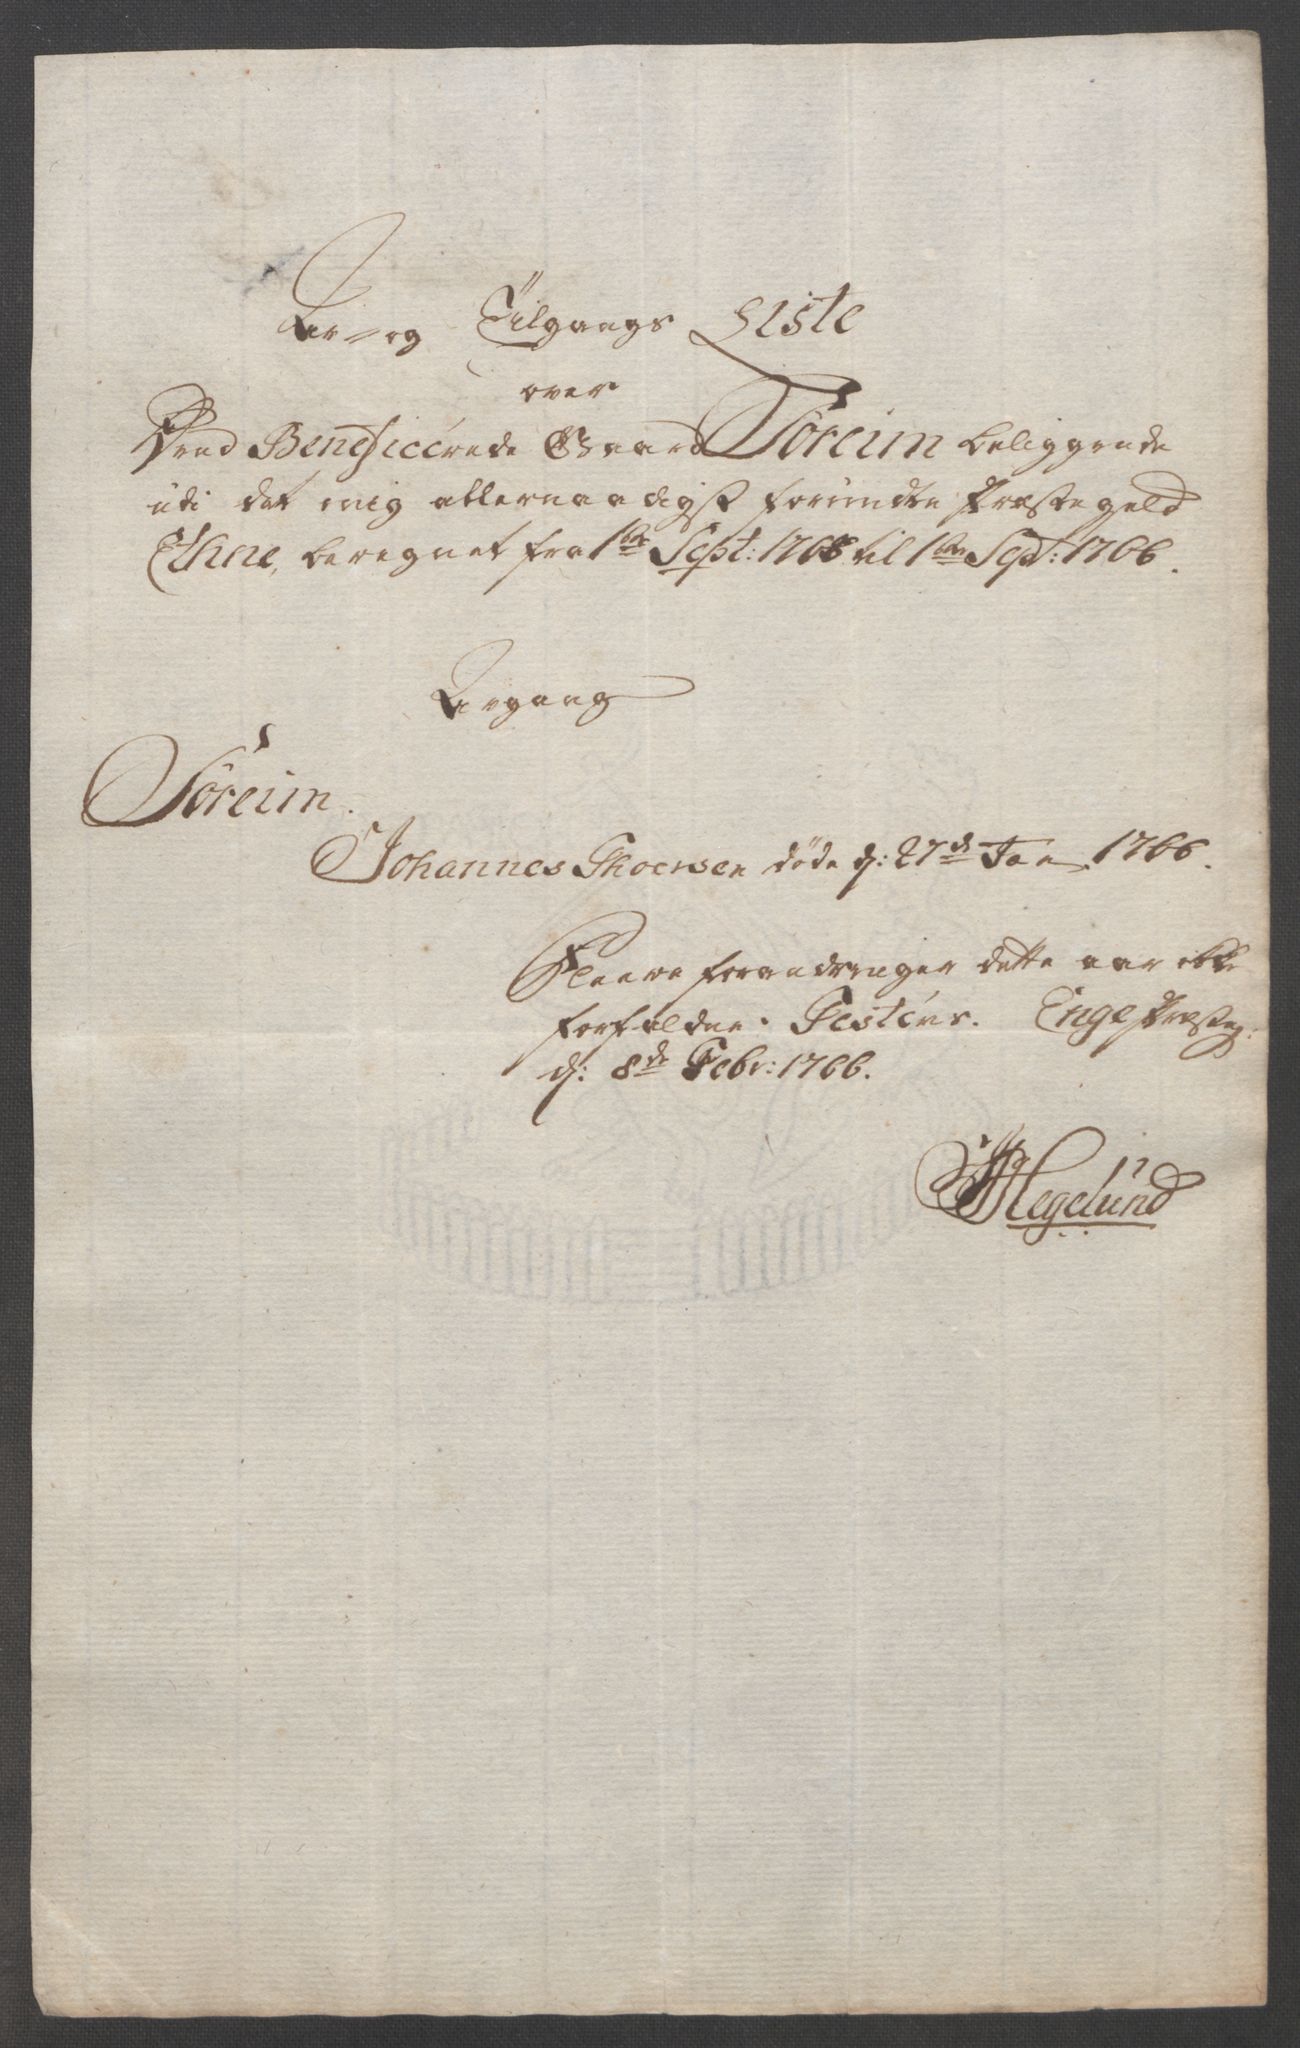 Av- og Tilgangs Liste
over
Dend Beneficerede Gaard Sôreim beliggende
udi det mig allernaadigst forundte Præstegeld
Ethne, beregnet fra 1ste Sept: 1765 til 1ste Sept: 1766.
Avgang
Sôreim.
Johannes Thoersen døde d: 27de Jan 1766.
Fleere forandringer dette aar ikke
forfalden. Testeres. Enge Præsteg:
d: 8de Febr: 1766.
Hegelund